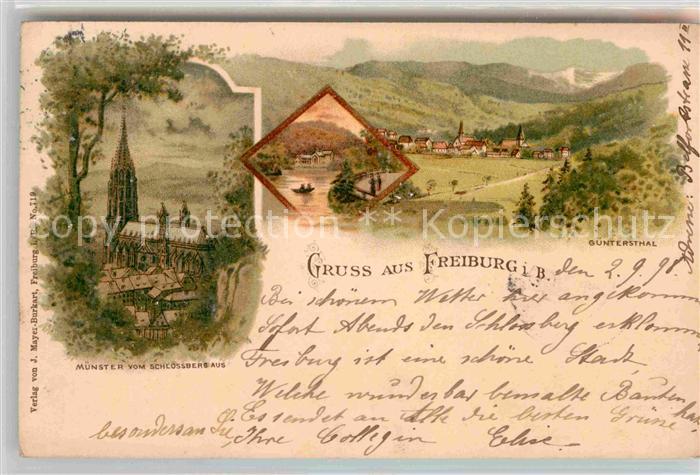 GRUSS AUS FREIBURG i. B.
GÜNTERSTHAL
MÜNSTER VOM SCHLOSSBERG AUS
Verlag von J. Mayer-Burkart, Freiburg i. B. No. 119
copyright photo *** copyright photo
den 2. 9. 98.
Bei schönem Wetter hier angekomm
Sofort Abends den Schlossberg erklomm
Freiburg ist eine schöne Stadt,
Welche wunderbar bemalte Bauten hat
Es sendet an Alle die besten Grüsse
besonders an Sie,
Ihre Collegin Elise.